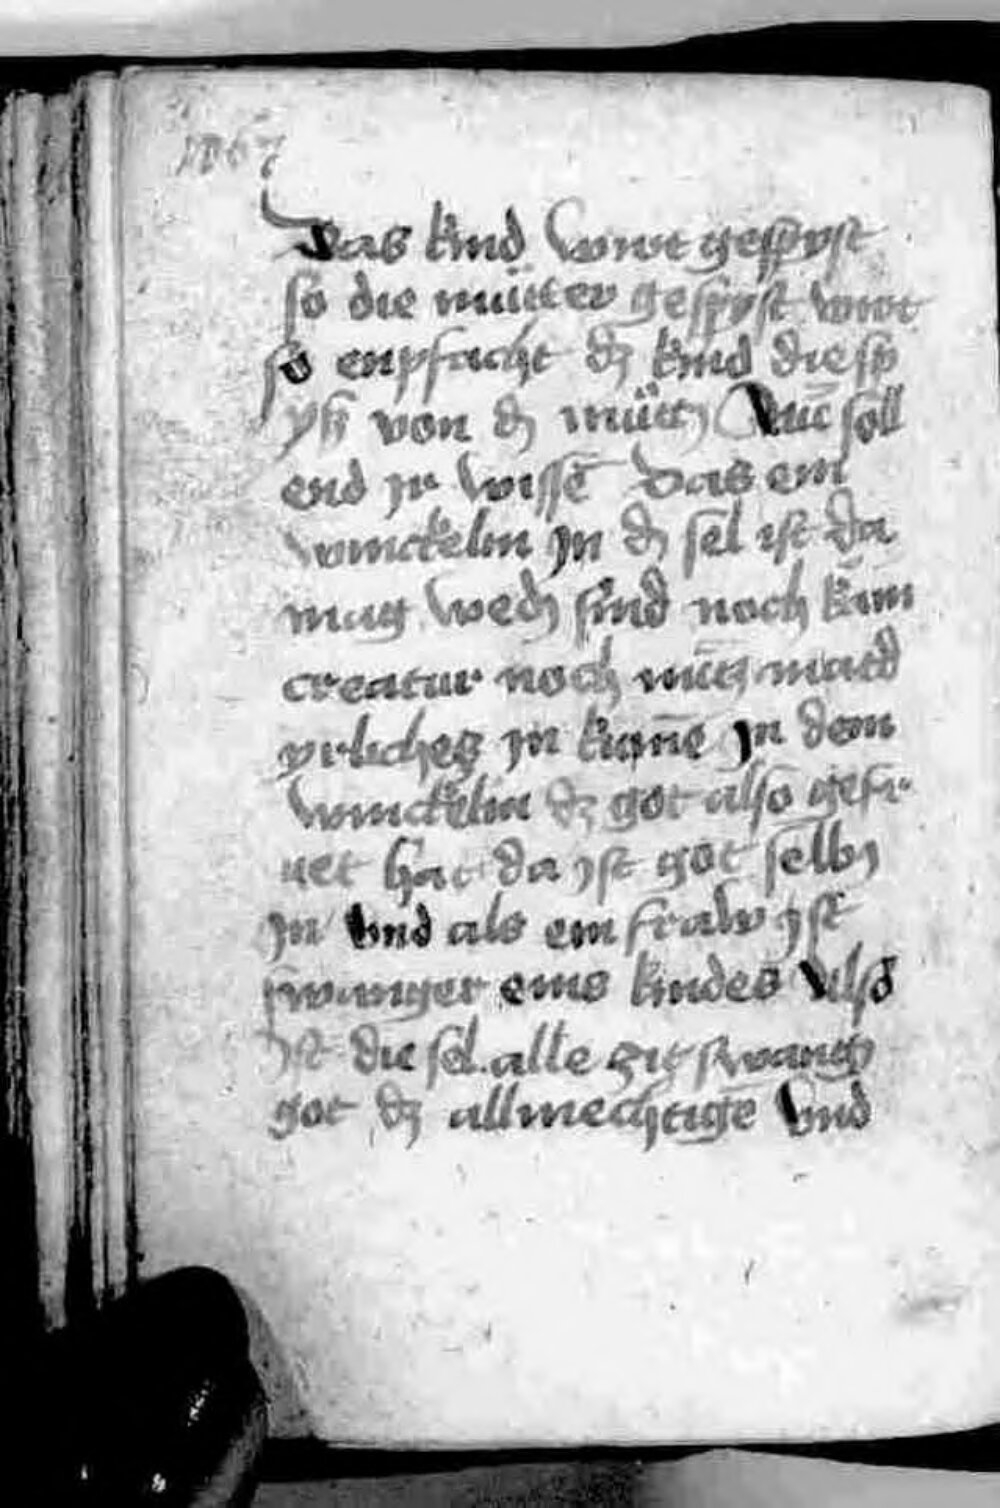 Das kind wirt gespyst
so die muͤtter gespyst wirt
so enpfacht dz kind die sp
yß von d' muͤtt' Nū soll
end ir wissē das ein
winckelin jn d' sel ist da
mag wed' sünd noch kain
creatur noch nütz natd
yrliches jn kumē jn dem
winckelin dz got also gefr
yet hat da jst got selb'
jn vnd als ein fraw jst
swanger eins kindes Also
jst die sel alle zit swang'
got dz allmechtigē vnd